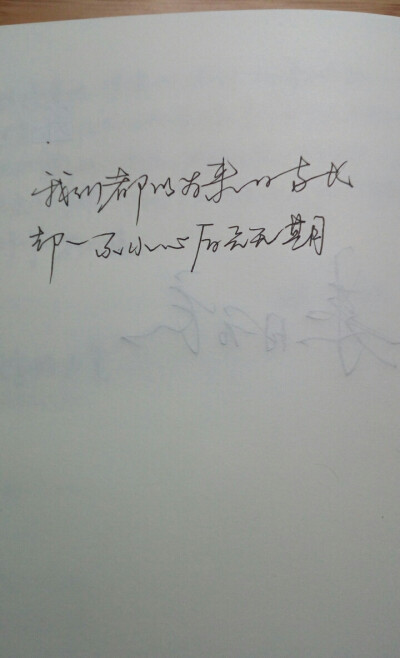 我们都以为来日方长
却一不小心后会无期